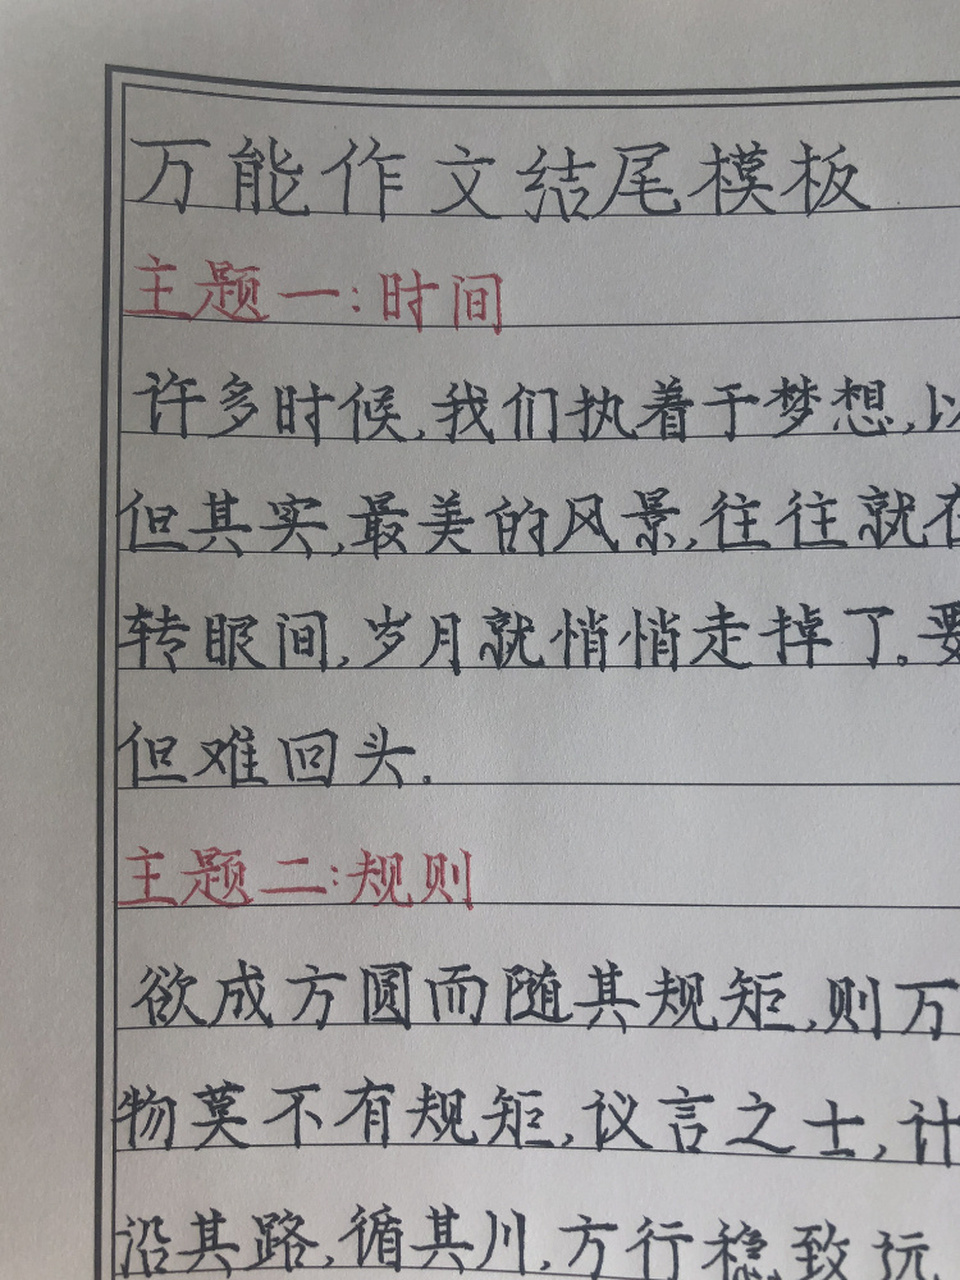 万能作文结尾模板
主题一:时间
许多时候,我们执着于梦想,以
但其实,最美的风景,往往就在
转眼间,岁月就悄悄走掉了。要
但难回头.
主题二:规则
欲成方圆而随其规矩,则万
物莫不有规矩,议言之士,计
沿其路,循其川,方行稳致远